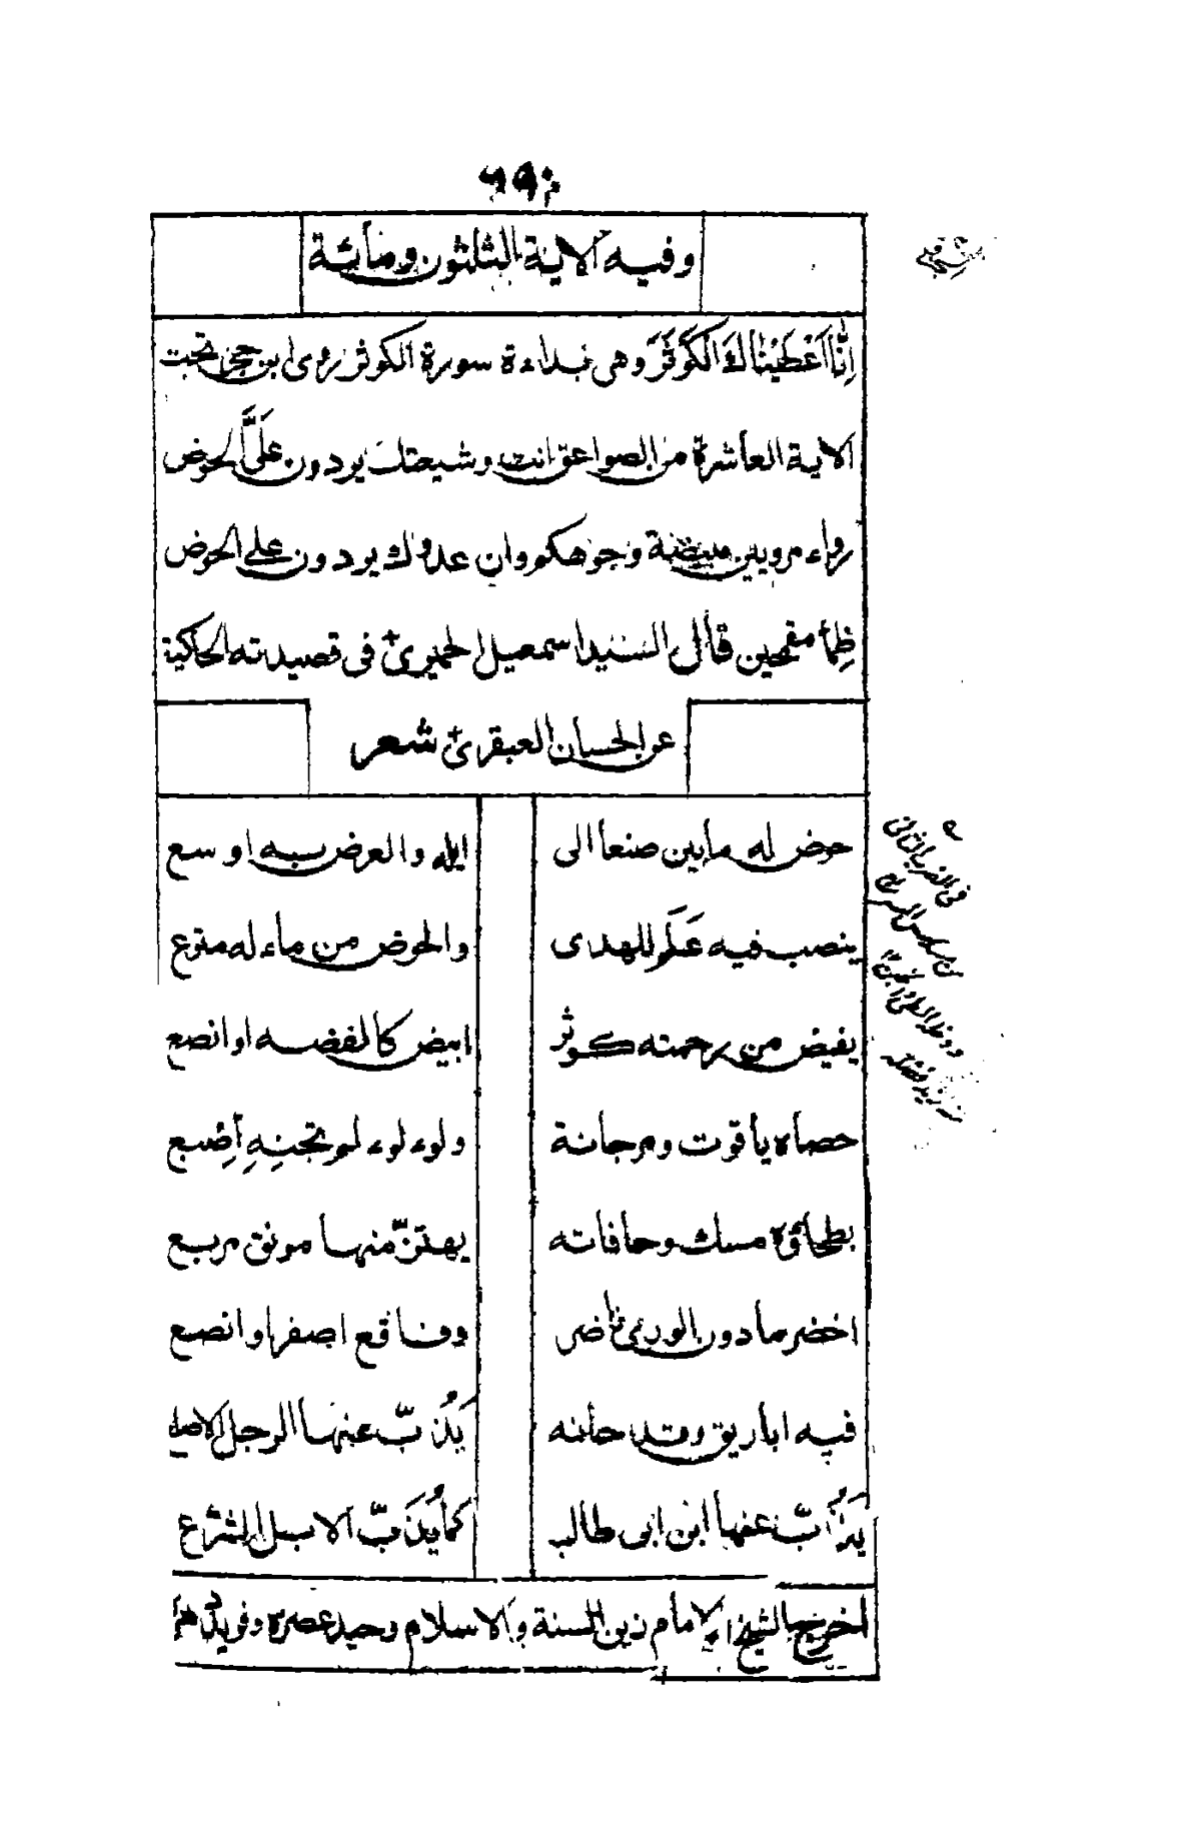 وفيه الاية الثلثون ومأئة
اِنَّا اَعْطَيْنَاكَ الْكَوْثَرَ وهى بداءة سورة الكوثر روى ابن حجر تحت
الاية العاشرة من الصواعق انت وشيعتك يردون عَلَىَّ الحوض
رواء مرويين مبيضة وجوهكم وان عدوك يردون على الحوض
ظِمأ مقمحين قال السيد اسمعيل الحميرى فى قصيدته الحاكية
عن الحسان العبقرى شعر
حوض له مابين صنعا الى ايله والعرض به اوسع
ينصب فيه عَلَم للهدى والحوض من ماء له مترع
يفيض من رحمته كوثر ابيض كالفضه او انصع
حصاه ياقوت ومرجانة ولوء لوء لم تجنِهِ اُصْبع
بطحاؤه مسك وحافاته يهتزّ منها مونق مربع
اخضر مادون الورى ناضر وفاقع اصفر او انصع
فيه اباريق وقد حانه يَذُبّ عنها الرجل الاصلع
يَذُبّ عنها ابن ابى طالب كما يُذَبّ الابل الشرّع
اخرج الشيخ الامام زين السنة والاسلام وحيد عصره وفريد